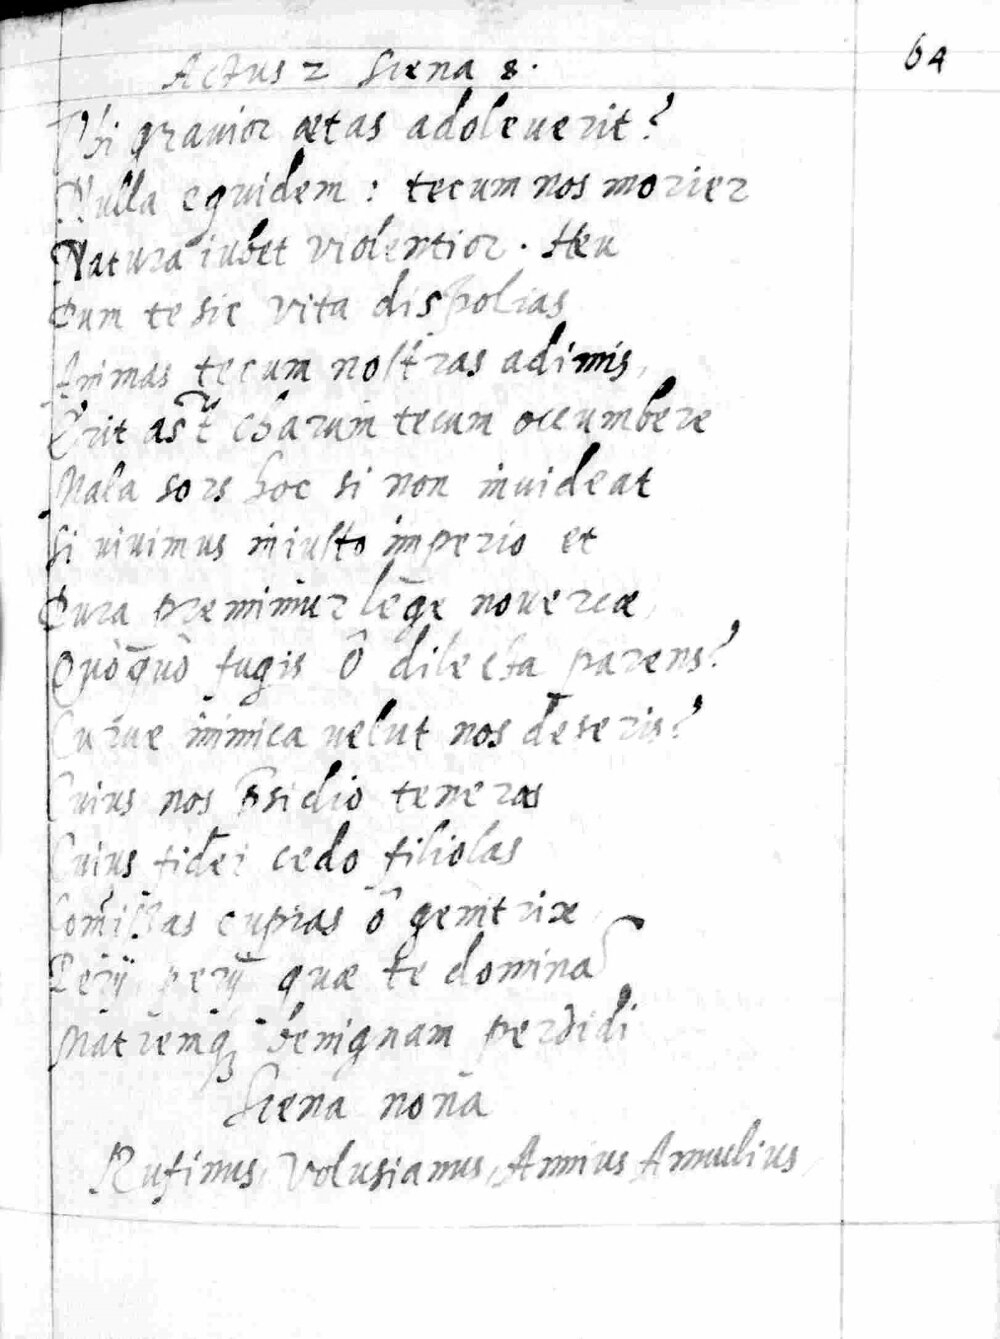 Actus 2 Scena 8.
64
Vbi grauior ætas adoleuerit?
Nulla equidem : tecum nos morier
Natura iubet violentior. Heu
Dum te sic vita dispolias
Animas tecum nostras adimis,
Erit ast charum tecum occumbere
Mala sors hoc si non inuideat
Si uiuimus iniusto imperio et
Dura præmimur lege nouercæ,
Quò quò fugis ô dilecta parens?
Curue inimica uelut nos deseris?
Cuius nos p̄sidio teneras
Cuius fidei cedo filiolas
Com̄issas cupias ô genitrix
Perij perij quæ te domina
Matremq; benignam perdidi
Scena nona
Rufinus, Volusianus, Annius Annulius,